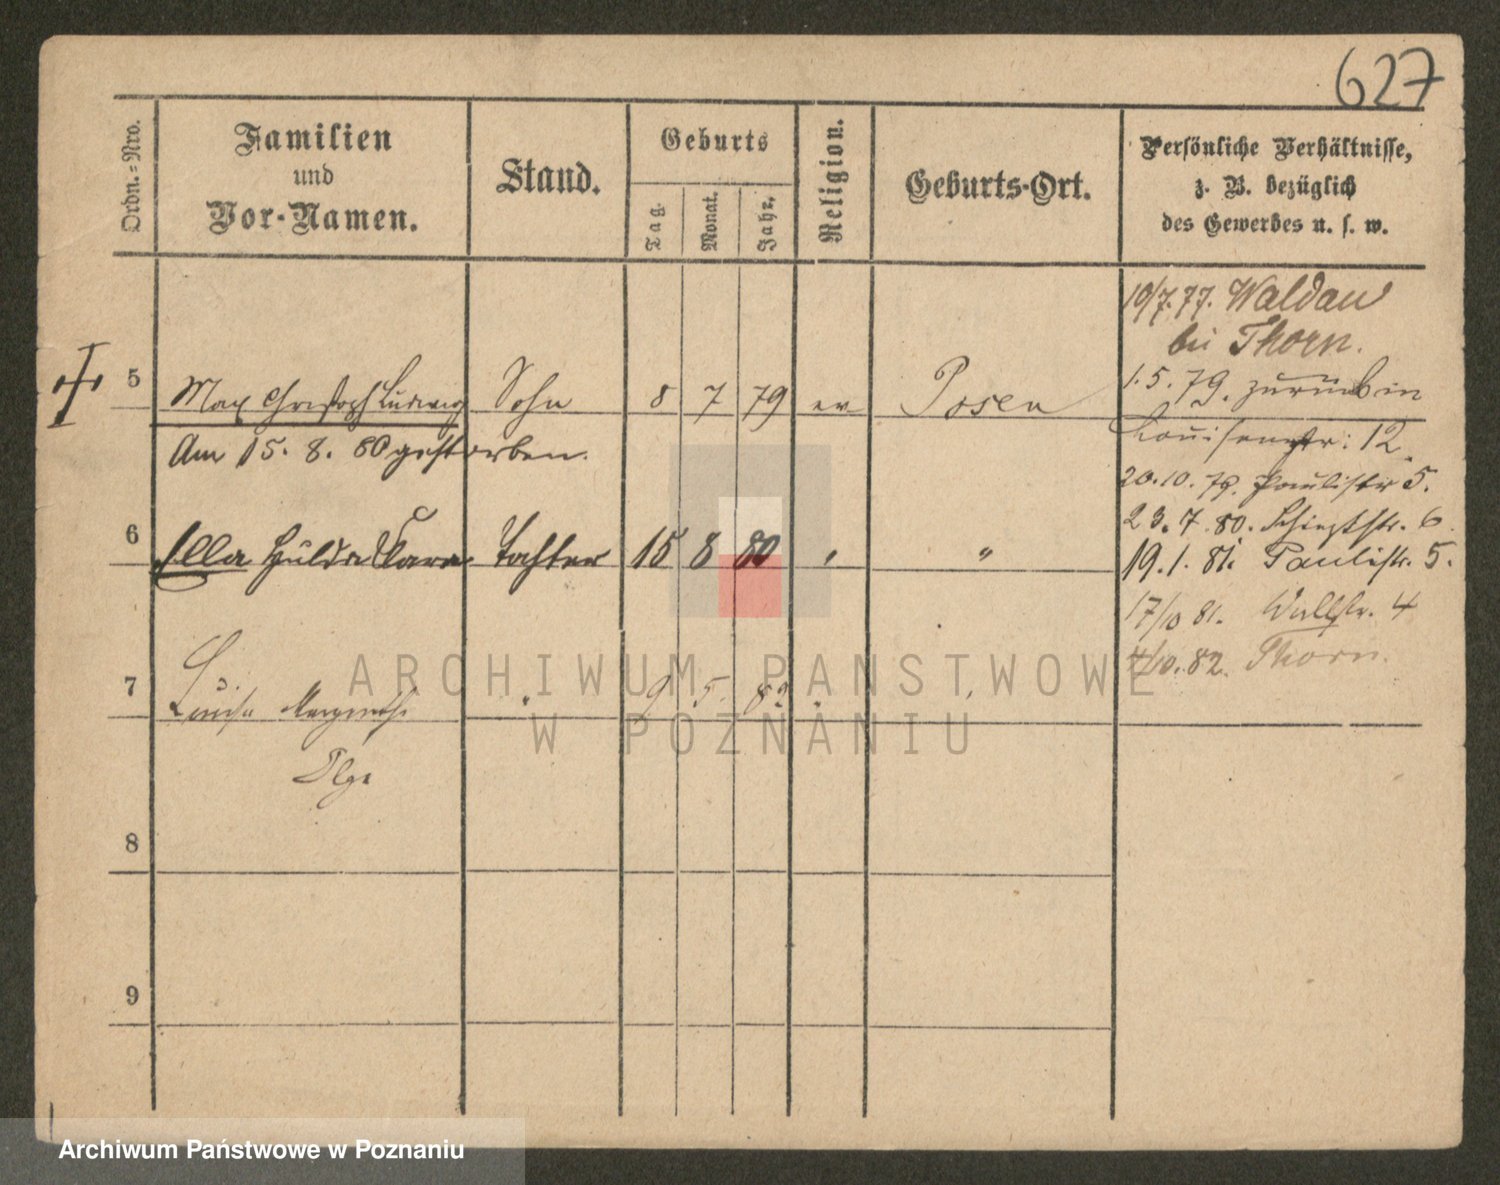 627
Ordn.-Nro.
Familien
und
Vor-Namen.
Stand.
Geburts
Tag.
Monat.
Jahr.
Religion.
Geburts-Ort.
Persönliche Verhältnisse,
z. B. bezüglich
des Gewerbes u. s. w.
10/7.77. Waldau
bei Thorn.
5 Max Christoph Ludwig Sohn 8 7 79 ev Posen
1.5.79. zurück in
Louisenstr: 12.
Am 15. 8. 80 gestorben.
20.10.79. Paulistr 5.
23.7.80. Schießstr. 6.
6 Ella Hulda Clara Tochter 15 8 80 " "
19.1.81. Paulistr. 5.
17/10 81. Wallstr. 4
4/10.82. Thorn.
7 Louise Margarethe " 9 5. 82. "
Olga
8
9
ARCHIWUM PAŃSTWOWE
W POZNANIU
Archiwum Państwowe w Poznaniu